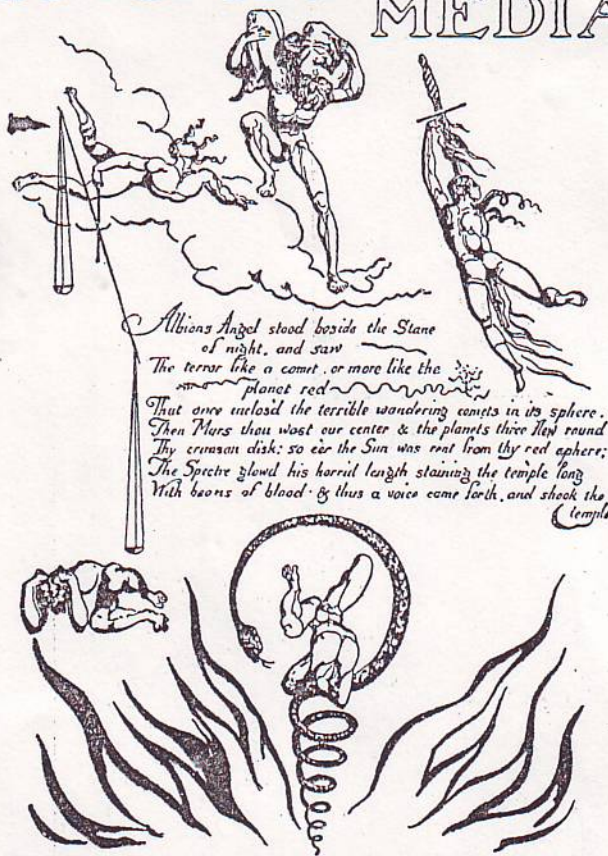 MEDIA
Albions Angel stood beside the Stane
of night, and saw
The terror like a comet, or more like the
planet red
That once inclos'd the terrible wandering comets in its sphere.
Then Mars thou wast our center & the planets three flew round
Thy crimson disk; so e'er the Sun was rent from thy red sphere;
The Spectre glowd his horrid length staining the temple long
With beams of blood & thus a voice came forth, and shook the
temple